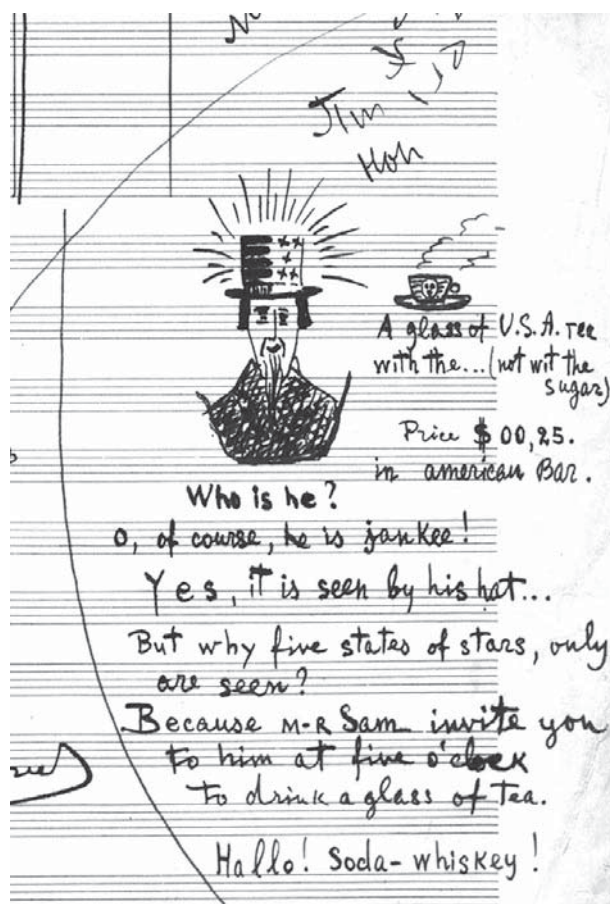 Jim
Hon
A glass of U.S.A. Tea
with the... (not wit the
sugar)
Price $ 00,25.
in american Bar.
Who is he?
O, of course, he is jankee!
Yes, it is seen by his hat...
But why five states of stars, only
are seen?
Because M-R Sam invite you
to him at five o'clock
to drink a glass of Tea.
Hallo! Soda-whiskey!